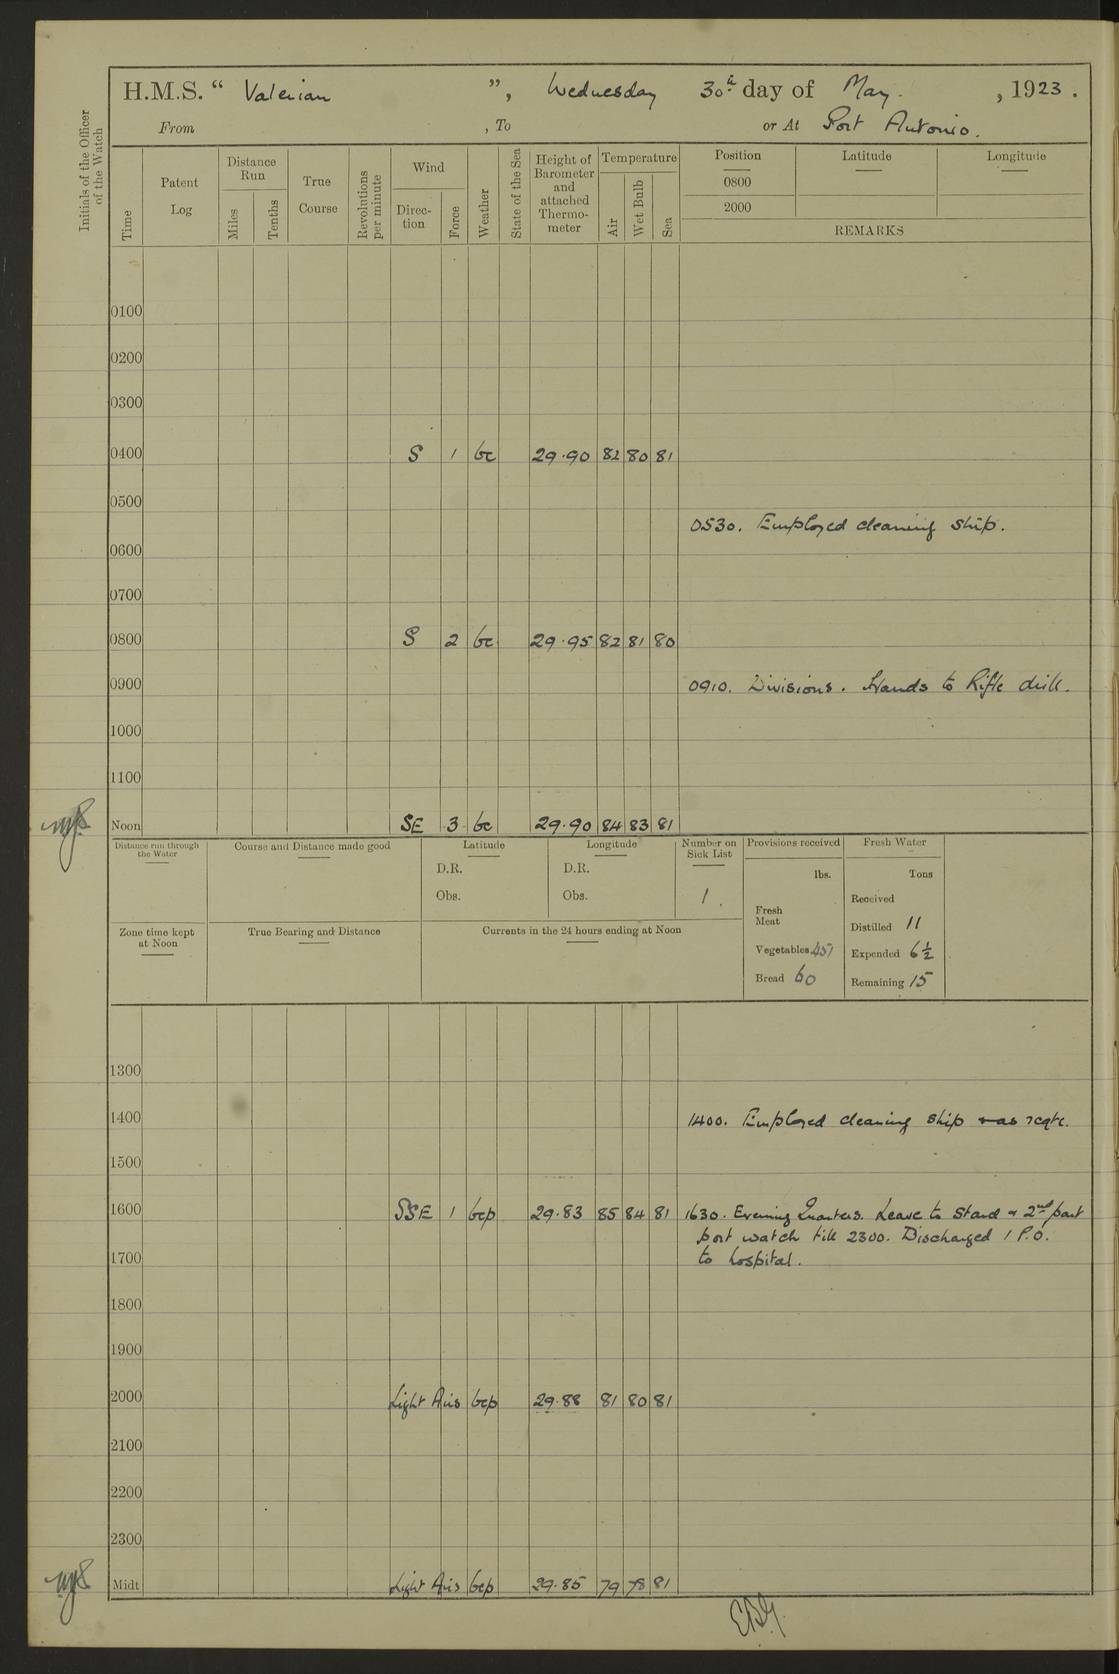 H.M.S. “ Valerian ”, Wednesday 30th day of May. , 1923.
From , To or At Port Antonio.
Initials of the Officer of the Watch
Time
Patent Log
Distance Run
Miles
Tenths
True Course
Revolutions per minute
Wind
Direc- tion
Force
Weather
State of the Sea
Height of Barometer and attached Thermo- meter
Temperature
Air
Wet Bulb
Sea
Position Latitude Longitude
0800
2000
REMARKS
0100
0200
0300
0400 S 1 bc 29.90 82 80 81
0500
0530. Employed cleaning ship.
0600
0700
0800 S 2 bc 29.95 82 81 80
0900 0910. Divisions. Hands to Rifle drill.
1000
1100
Noon SE 3 bc 29.90 84 83 81
Distance run through the Water
Course and Distance made good
Latitude
D.R.
Obs.
Longitude
D.R.
Obs.
Number on Sick List
1.
Provisions received
lbs.
Fresh Meat
Vegetables 45
Bread 60
Fresh Water
Tons
Received
Distilled 11
Expended 6½
Remaining 15
Zone time kept at Noon
True Bearing and Distance
Currents in the 24 hours ending at Noon
1300
1400 1400. Employed cleaning ship as reqte.
1500
1600 SSE 1 bcp 29.83 85 84 81 1630. Evening Quarters. Leave to Starbd & 2nd part
port watch till 2300. Discharged 1 P.O.
1700 to hospital.
1800
1900
2000 Light Airs bcp 29.88 81 80 81
2100
2200
2300
Midt Light Airs bcp 29.85 79 78 81